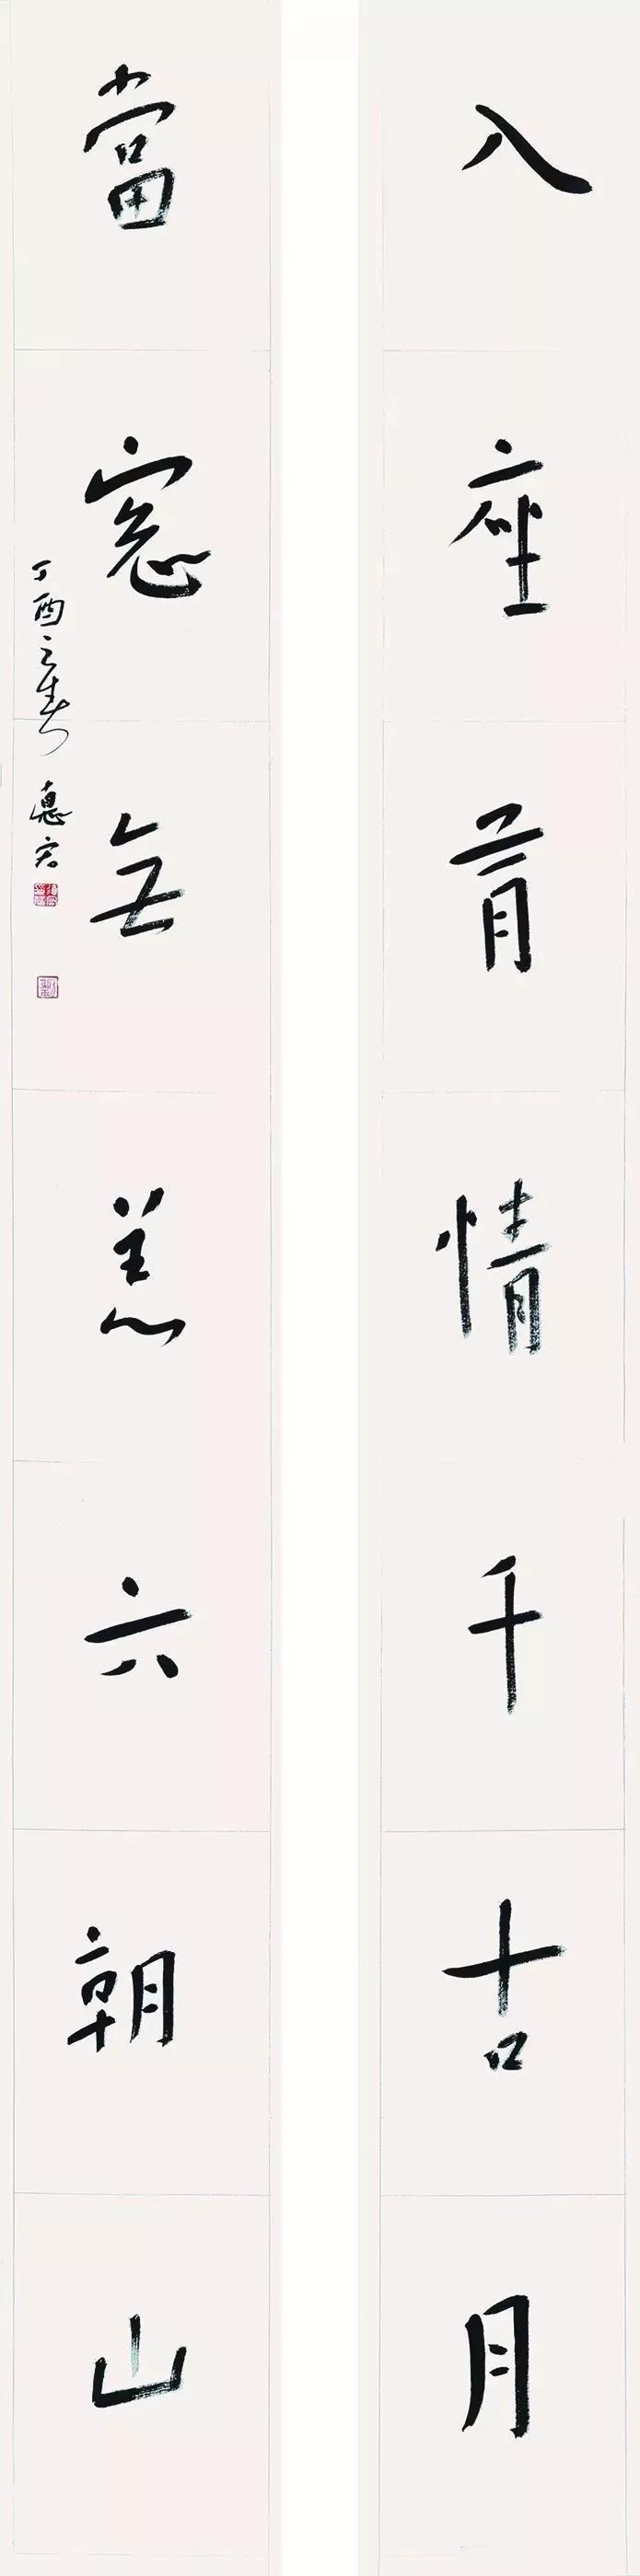 入座有情千古月
當窓無恙六朝山
丁酉之春 惪宏